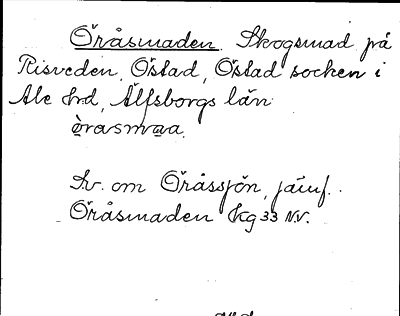 Öråsmaden. Skogsmad på
Risveden, Östad, Östad socken i
Ale hrd, Älfsborgs län
òrasmaa.
Sv. om Öråssjön, jämf.
Öråsmaden Kg 33 NV.